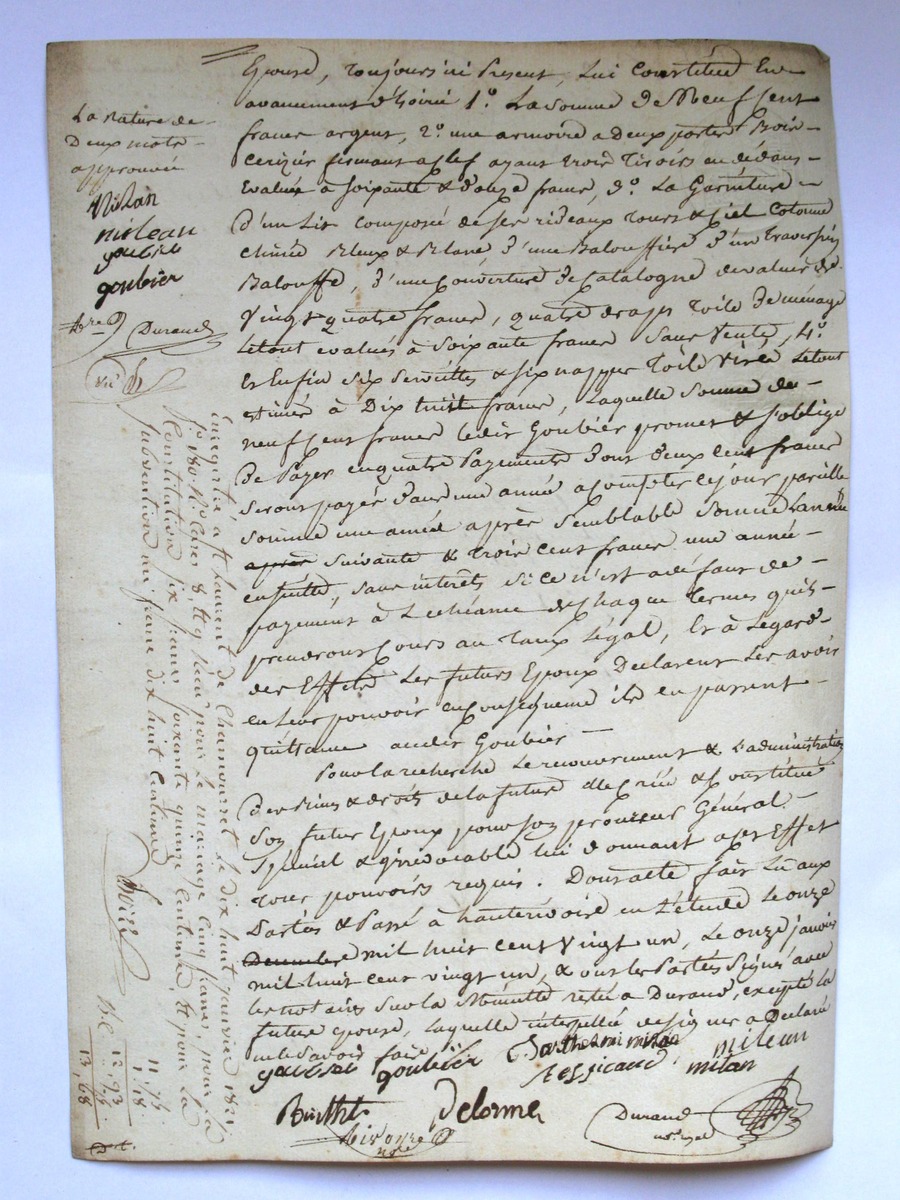 Epouse, Toujours ici Present, lui Constitue En
avancement d'hoirie 1.° La Somme de Neuf Cent
francs argent, 2.° une armoire a Deux portes Bois
Cerizier fermant a Clef ayant trois Tiroirs en dédans
Evaluée à soixante & douze francs, 3.° La Garniture
d'un Lit composée de ses rideaux Tours & Ciel Cotonne
Chinée Bleux & Blanc d'une Balouffière d'un Traversin
Balouffe, d'une Couverture de Catalogne
Vingt quatre francs, quatre draps Toile De ménage
Letout evalués à Soixante francs Sans Vente, 4.°
Et Enfin six Serviettes & six nappes Toile Letout
estimés à Dix huit francs, Laquelle Somme de
neuf Cent francs ledit Goubier promet & s'oblige
De Payer en quatre Payements dont deux Cent francs
Seront payés dans une année a Compter de ce jour pareille
Somme une année après Semblable Somme L'année
après Suivante & trois cent francs une année
ensuitte, Sans interêts, Si ce n'est a défaut de
payement à L'echéance de Chaque Termes qu'ils
prendront Cours au Taux Légal, Et à Légard
des Effets Les futurs Epoux Declarent Les avoir
en Leur pouvoir en Conséquence ils en passent
quittance audit Goubier
Pour la recherche Le recouvrement & L'administration
Des Biens & droits de la future elle Crée & Constitue
Son futur Epoux pour Son procureur Général
Spécial & irrévocable lui donnant a cet Effet
Tous pouvoirs requis. Dont acte fait Lu aux
Parties & Passé à hauterivoire en L'étude Le onze
Decembre mil huit cent Vingt un, Le onze janvier
mil huit cent vingt un, & ont les Parties Signé avec
les notaires Sur la Minutte restée a Durand, excepté la
future epouse, Laquelle interpellée de signer a Declaré
ne Savoir faire
goubier Barthelmi milan milean
goubier Tessicaud milan
Berthet Delorme Durand
La rature de
Deux mots
approuvée
Milan
milean
goubier
goubier
Durand
Enregistré à St Laurent de Chamousset le dix huit janvier 1821
f.° 180 R.° Cases 8 & 9 reçu pour le mariage Cinq francs, pour la
Constitution dix francs soixante quinze Centimes, & pour la
Subvention un franc dix huit Centimes
11 75
1, 18
12, 93
75
13, 68